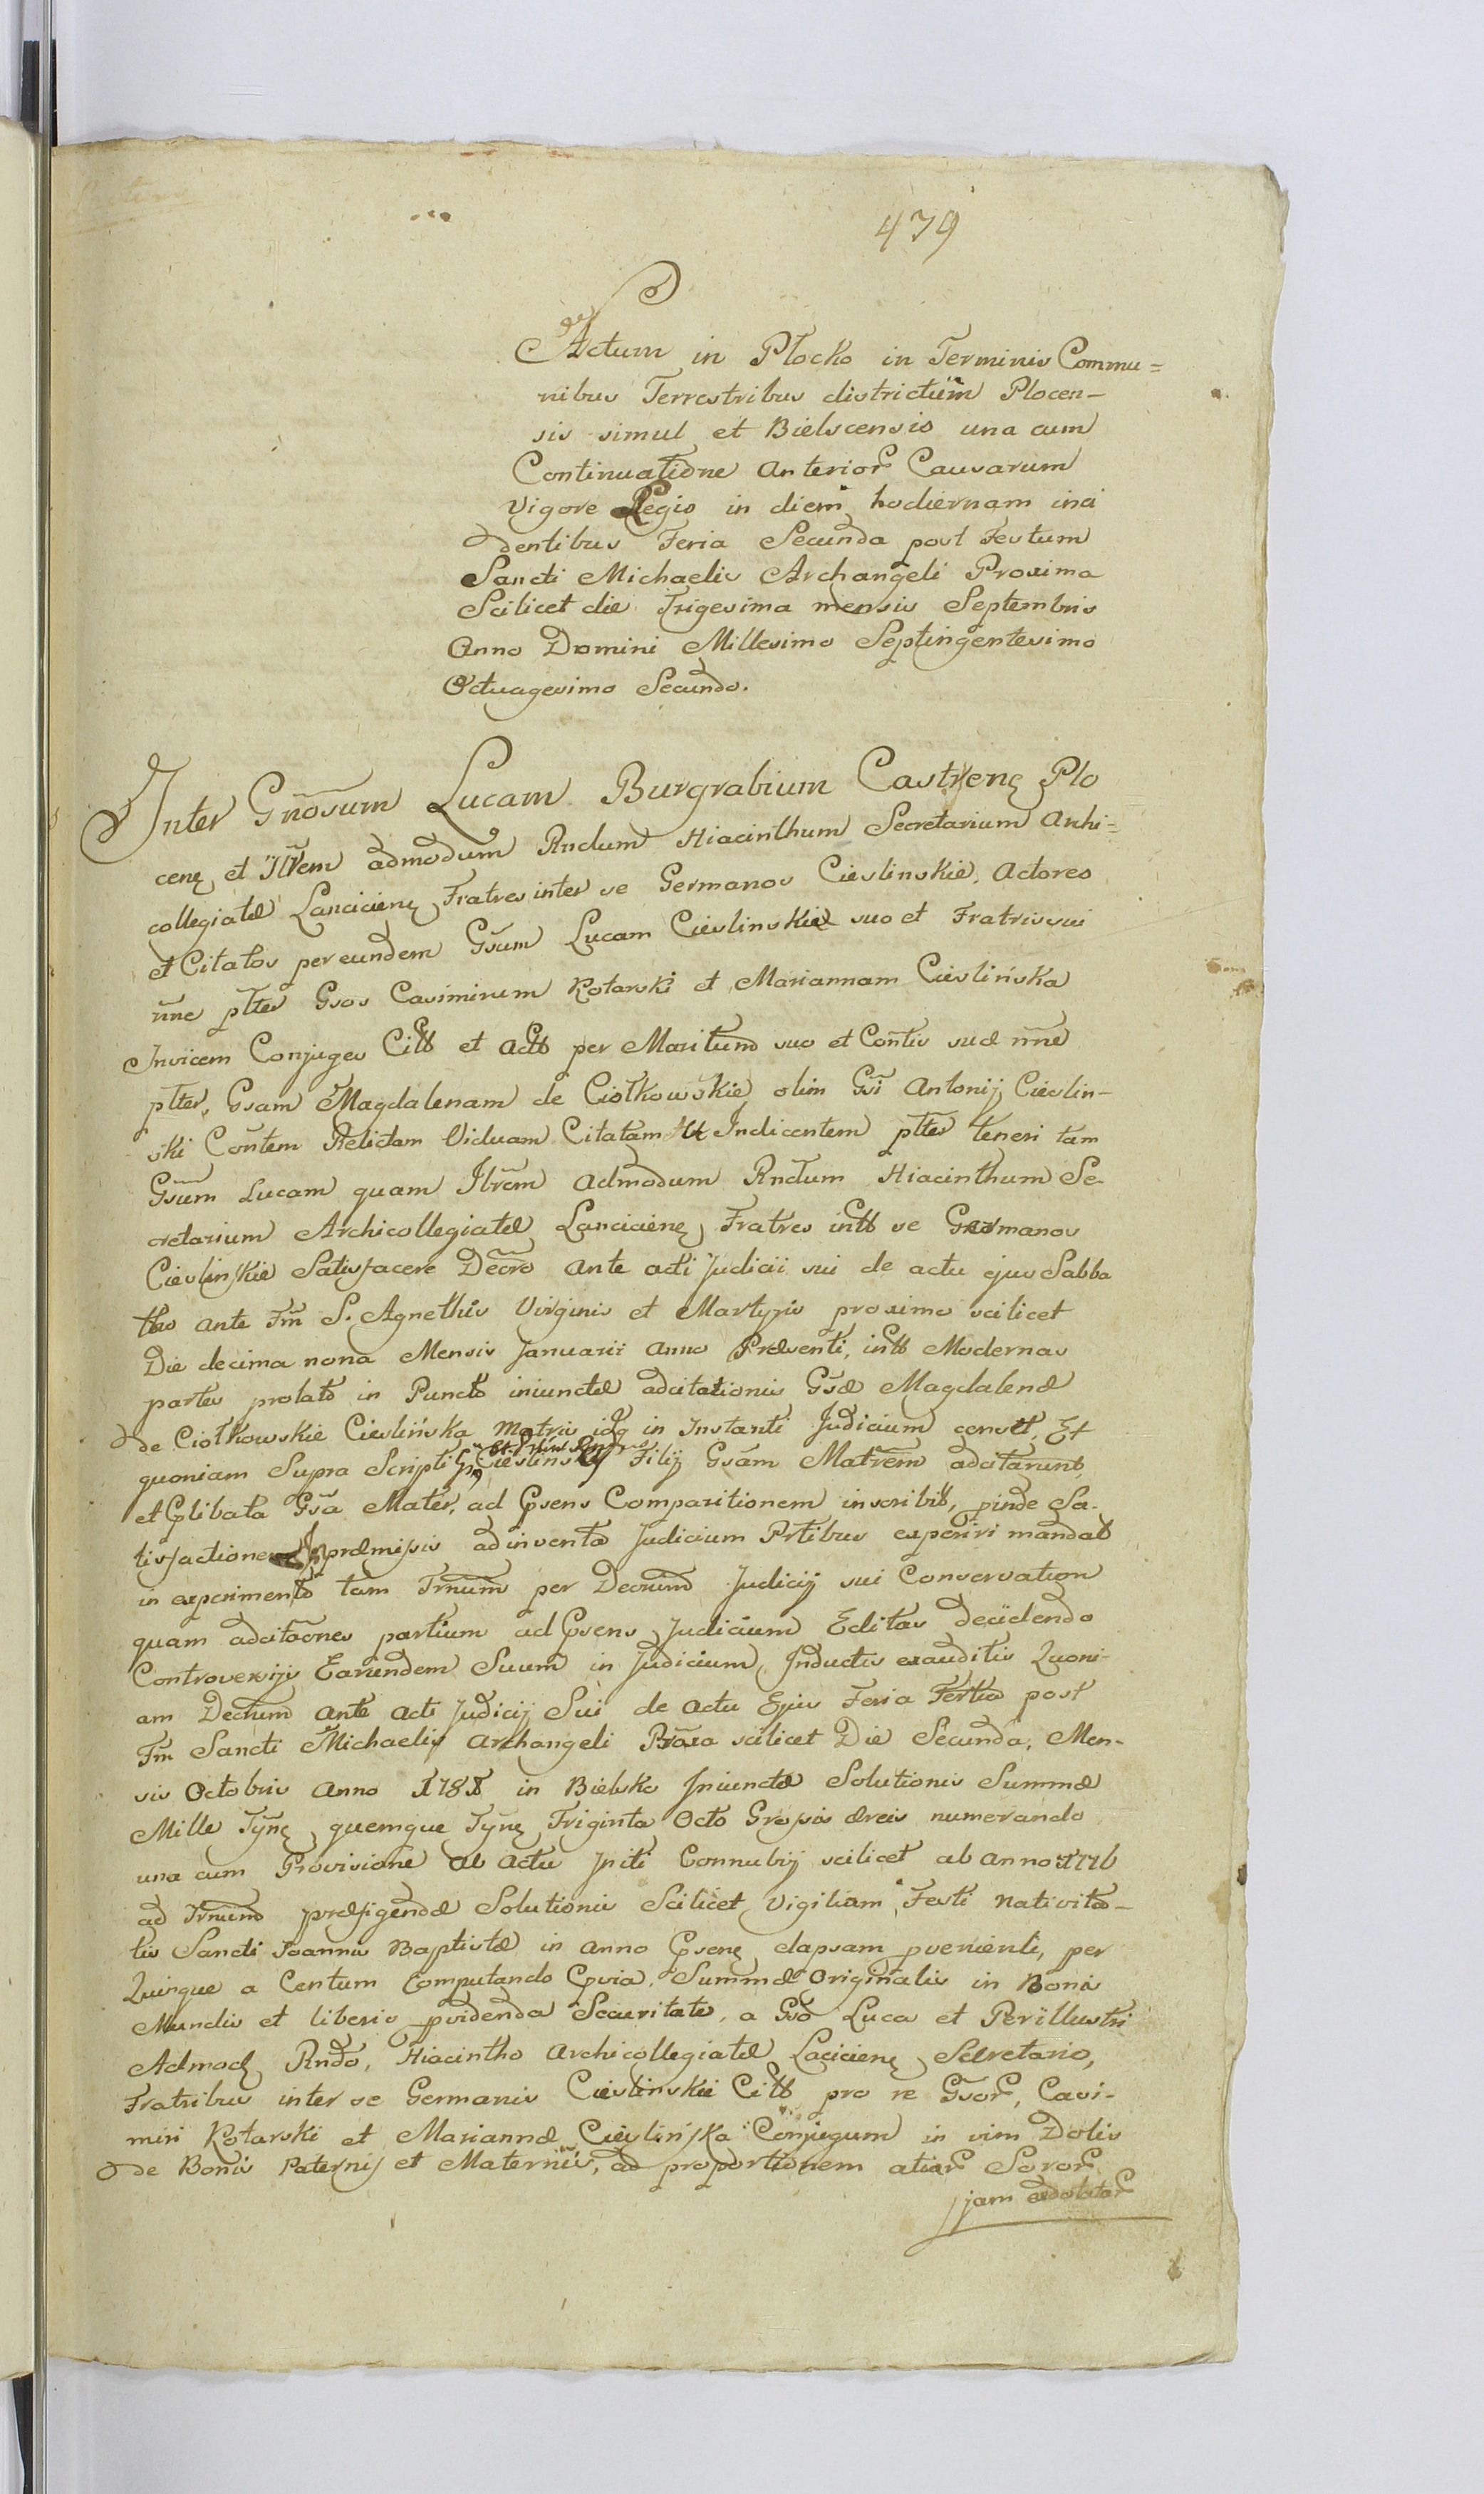 479
Actum in Płocko in Terminis Commu=
nibus Terrestribus districtum Plocen-
sis simul et Bielscensis una cum
Continuatione Anterior Causarum
vigore Legis in diem hodiernam inci
dentibus Feria Secunda post Festum
Sancti Michaelis Archangeli Proxima
Scilicet die Trigesima mensis Septembris
Anno Domini Millesimo Septingentesimo
Octuagesimo Secundo.
Inter Gnosum Lucam Burgrabium Castrens Plo
cens et Illrem admodum Rndum Hiacinthum Secretarium Archi=
collegiatæ Lanciciens Fratres inter se Germanos Cieslinskie, Actores
et Citatos per eundem Gsum Lucam Cieslinskie suo et Fratris sui
nne plter Gsos Casimirum Kotarski et Mariannam Cieslińska
Invicem Conjuges Citt et Actt per Maritum suo et Contis suæ nne
plter, Gsam Magdalenam de Ciołkowskie olim Gsi Antonij Cieslin-
ski Contem Relictam Viduam Citatam Indicentem plter teneri tam
Gsum Lucam quam Illrem Admodum Rndum Hiacinthum Se-
cretarium Archicollegiatæ Lanciciens Fratres intt se Germanos
Cieslinskie Satisfacere Decro Ante acti Judicii sui de actu ejus Sabba
tho ante Fm S. Agnethis Virginis et Martyris proximo scilicet
Die decima nona Mensis Januarii Anno Præsenti, intt Modernas
partes prolato in Puncto iniunctæ adcitationis Gsæ Magdalenæ
de Ciołkowskie Cieslińska Matris idq in Instanti Judicium censet, Et
quoniam Supra Scripti Cieslinscy Filij Gsam Matrem adcitarunt,
et Plibata Gsa Mater, ad Psens Comparitionem inscribit, pinde Sa-
tisfactione præmissis adinventa Judicium Prtibus experiri mandat
in experimento tam Trnum per Decrum Judicij sui Conservation
quam adcitaones partium ad Psens Judicium Editas Decidendo
Controversijs Earundem Suum in Judicium, Inductis exauditis Quoni-
am Decrum Ante Acti Judicij Sui de Actu Ejus Feria Tertia post
Fm Sancti Michaelis Archangeli Proxa scilicet Die Secunda, Men-
sis Octobris Anno 1781 in Bielsko Iniunctæ Solutionis Summæ
Mille Tyns, quemque Tyns Triginta Octo Grossis æreis numerando
una cum Provisione ab Actu Initi Connubij scilicet ab Anno 1776
ad Trnum præfigendæ Solutionis Scilicet Vigiliam Festi Nativita-
tis Sancti Joannis Baptistæ in Anno Psens elapsam pvenienti, per
Quinque a Centum Computando Pvia, Summæ Originalis in Bonis
Mundis et liberis pvidenda Securitate, a Gso Luca et Perillustri
Admod Rndo, Hiacintho Archicollegiatæ Laciciens Secretario,
Fratribus inter se Germanis Cieslinskie Citt pro re Gsor, Casi-
miri Kotarski et Mariannæ Cieslińska Conjugum in vim Dotis
de Bonis Paternis et Maternis, ad proportionem aliar Soror
jam exdotatar